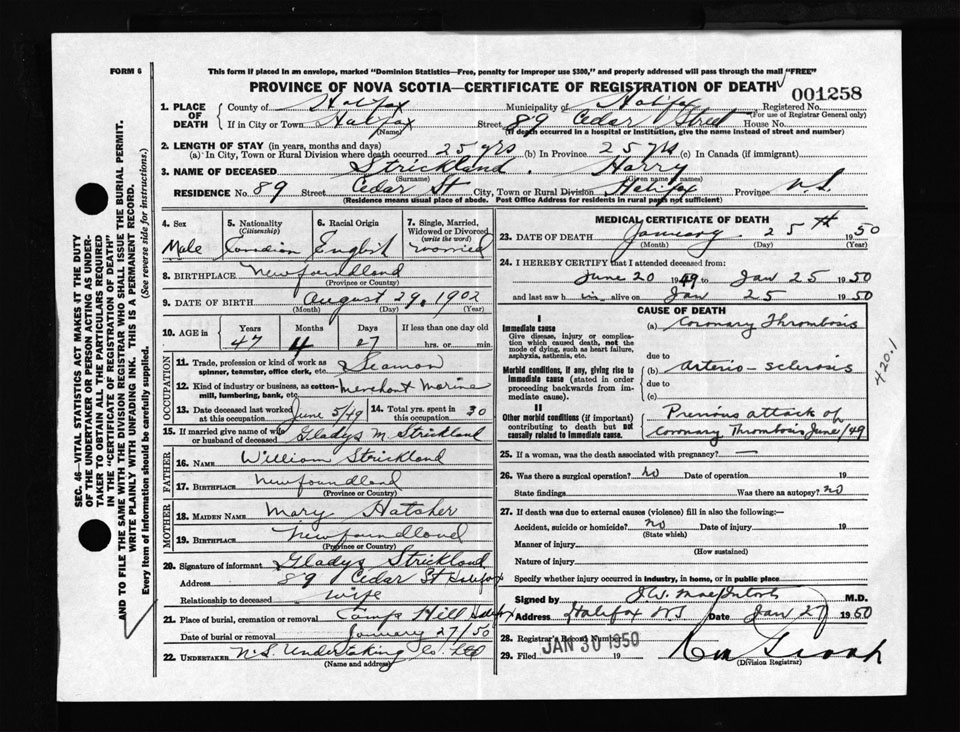 FORM 6
This form if placed in an envelope, marked "Dominion Statistics—Free, penalty for improper use $300," and properly addressed will pass through the mail "FREE"
PROVINCE OF NOVA SCOTIA—CERTIFICATE OF REGISTRATION OF DEATH
001258
1. PLACE OF DEATH
County of Halifax Municipality of Halifax Registered No.
(For use of Registrar General only)
If in City or Town Halifax Street 89 Cedar Street House No.
(Name) (If death occurred in a hospital or institution, give the name instead of street and number)
2. LENGTH OF STAY (in years, months and days)
(a) In City, Town or Rural Division where death occurred 25 yrs (b) In Province 25 yrs (c) In Canada (if immigrant)
3. NAME OF DECEASED Strickland, Harry
(Surname) (Given name or names)
RESIDENCE No. 89 Street Cedar St City, Town or Rural Division Halifax Province N.S.
(Residence means usual place of abode. Post Office Address for residents in rural parts not sufficient)
4. Sex
Male
5. Nationality
(Citizenship)
Canadian
6. Racial Origin
English
7. Single, Married, Widowed or Divorced
(write the word)
married
8. BIRTHPLACE Newfoundland
(Province or Country)
9. DATE OF BIRTH August 29, 1902
(Month) (Day) (Year)
10. AGE in
Years Months Days If less than one day old
47 4 27 hrs. or min.
OCCUPATION
11. Trade, profession or kind of work as spinner, teamster, office clerk, etc. Seaman
12. Kind of industry or business, as cotton-mill, lumbering, bank, etc. Merchant Marine
13. Date deceased last worked at this occupation June 5/49
14. Total yrs. spent in this occupation 30
15. If married give name of wife or husband of deceased Gladys M. Strickland
FATHER
16. NAME William Strickland
17. BIRTHPLACE Newfoundland
(Province or Country)
MOTHER
18. MAIDEN NAME Mary Hatcher
19. BIRTHPLACE Newfoundland
(Province or Country)
20. Signature of informant Gladys Strickland
Address 89 Cedar St Halifax
Relationship to deceased wife
21. Place of burial, cremation or removal Camp Hill Halifax
Date of burial or removal January 27/50
22. UNDERTAKER N.S. Undertaking Co. Ltd
(Name and address)
MEDICAL CERTIFICATE OF DEATH
23. DATE OF DEATH January 25th 1950
(Month) (Day) (Year)
24. I HEREBY CERTIFY that I attended deceased from:
June 20 1949 to Jan 25 1950
and last saw h im alive on Jan 25 1950
CAUSE OF DEATH
I
Immediate cause
Give disease, injury or complication which caused death, not the mode of dying, such as heart failure, asphyxia, asthenia, etc.
(a) Coronary Thrombosis
due to
Morbid conditions, if any, giving rise to immediate cause (stated in order proceeding backwards from immediate cause).
(b) Arterio-sclerosis
due to
(c)
II
Other morbid conditions (if important) contributing to death but not causally related to immediate cause.
Previous attack of
Coronary Thrombosis June/49
420.1
25. If a woman, was the death associated with pregnancy? —
26. Was there a surgical operation? no Date of operation 19
State findings Was there an autopsy? no
27. If death was due to external causes (violence) fill in also the following:—
Accident, suicide or homicide? no Date of injury 19
(State which)
Manner of injury
(How sustained)
Nature of injury
Specify whether injury occurred in industry, in home, or in public place
Signed by J.W. MacIntosh M.D.
Address Halifax N.S Date Jan 27 1950
28. Registrar's Record Number
29. Filed JAN 30 1950 19
(Division Registrar)
SEC. 46—VITAL STATISTICS ACT MAKES IT THE DUTY
OF THE UNDERTAKER OR PERSON ACTING AS UNDER-
TAKER TO OBTAIN ALL THE PARTICULARS REQUIRED
IN THE "CERTIFICATE OF REGISTRATION OF DEATH"
AND TO FILE THE SAME WITH THE DIVISION REGISTRAR WHO SHALL ISSUE THE BURIAL PERMIT.
WRITE PLAINLY WITH UNFADING INK. THIS IS A PERMANENT RECORD.
Every item of information should be carefully supplied. (See reverse side for instructions.)